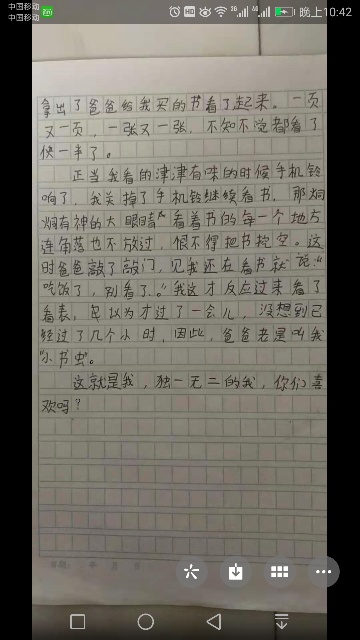 中国移动
中国移动
晚上10:42
拿出了爸爸给我买的书看了起来。一页
又一页，一张又一张，不知不觉都看了
快一半了。
正当我看的津津有味的时候手机铃
响了，我关掉了手机铃继续看书，那炯
炯有神的大眼睛看着书的每一个地方
连角落也不放过，恨不得把书挖空。这
时爸爸敲了敲门，见我还在看书就说："
吃饭了，别看了。"我这才反应过来看了
看表，自以为才过了一会儿，没想到已
经过了几个小时，因此，爸爸老是叫我
"小书虫"。
这就是我，独一无二的我，你们喜
欢吗？